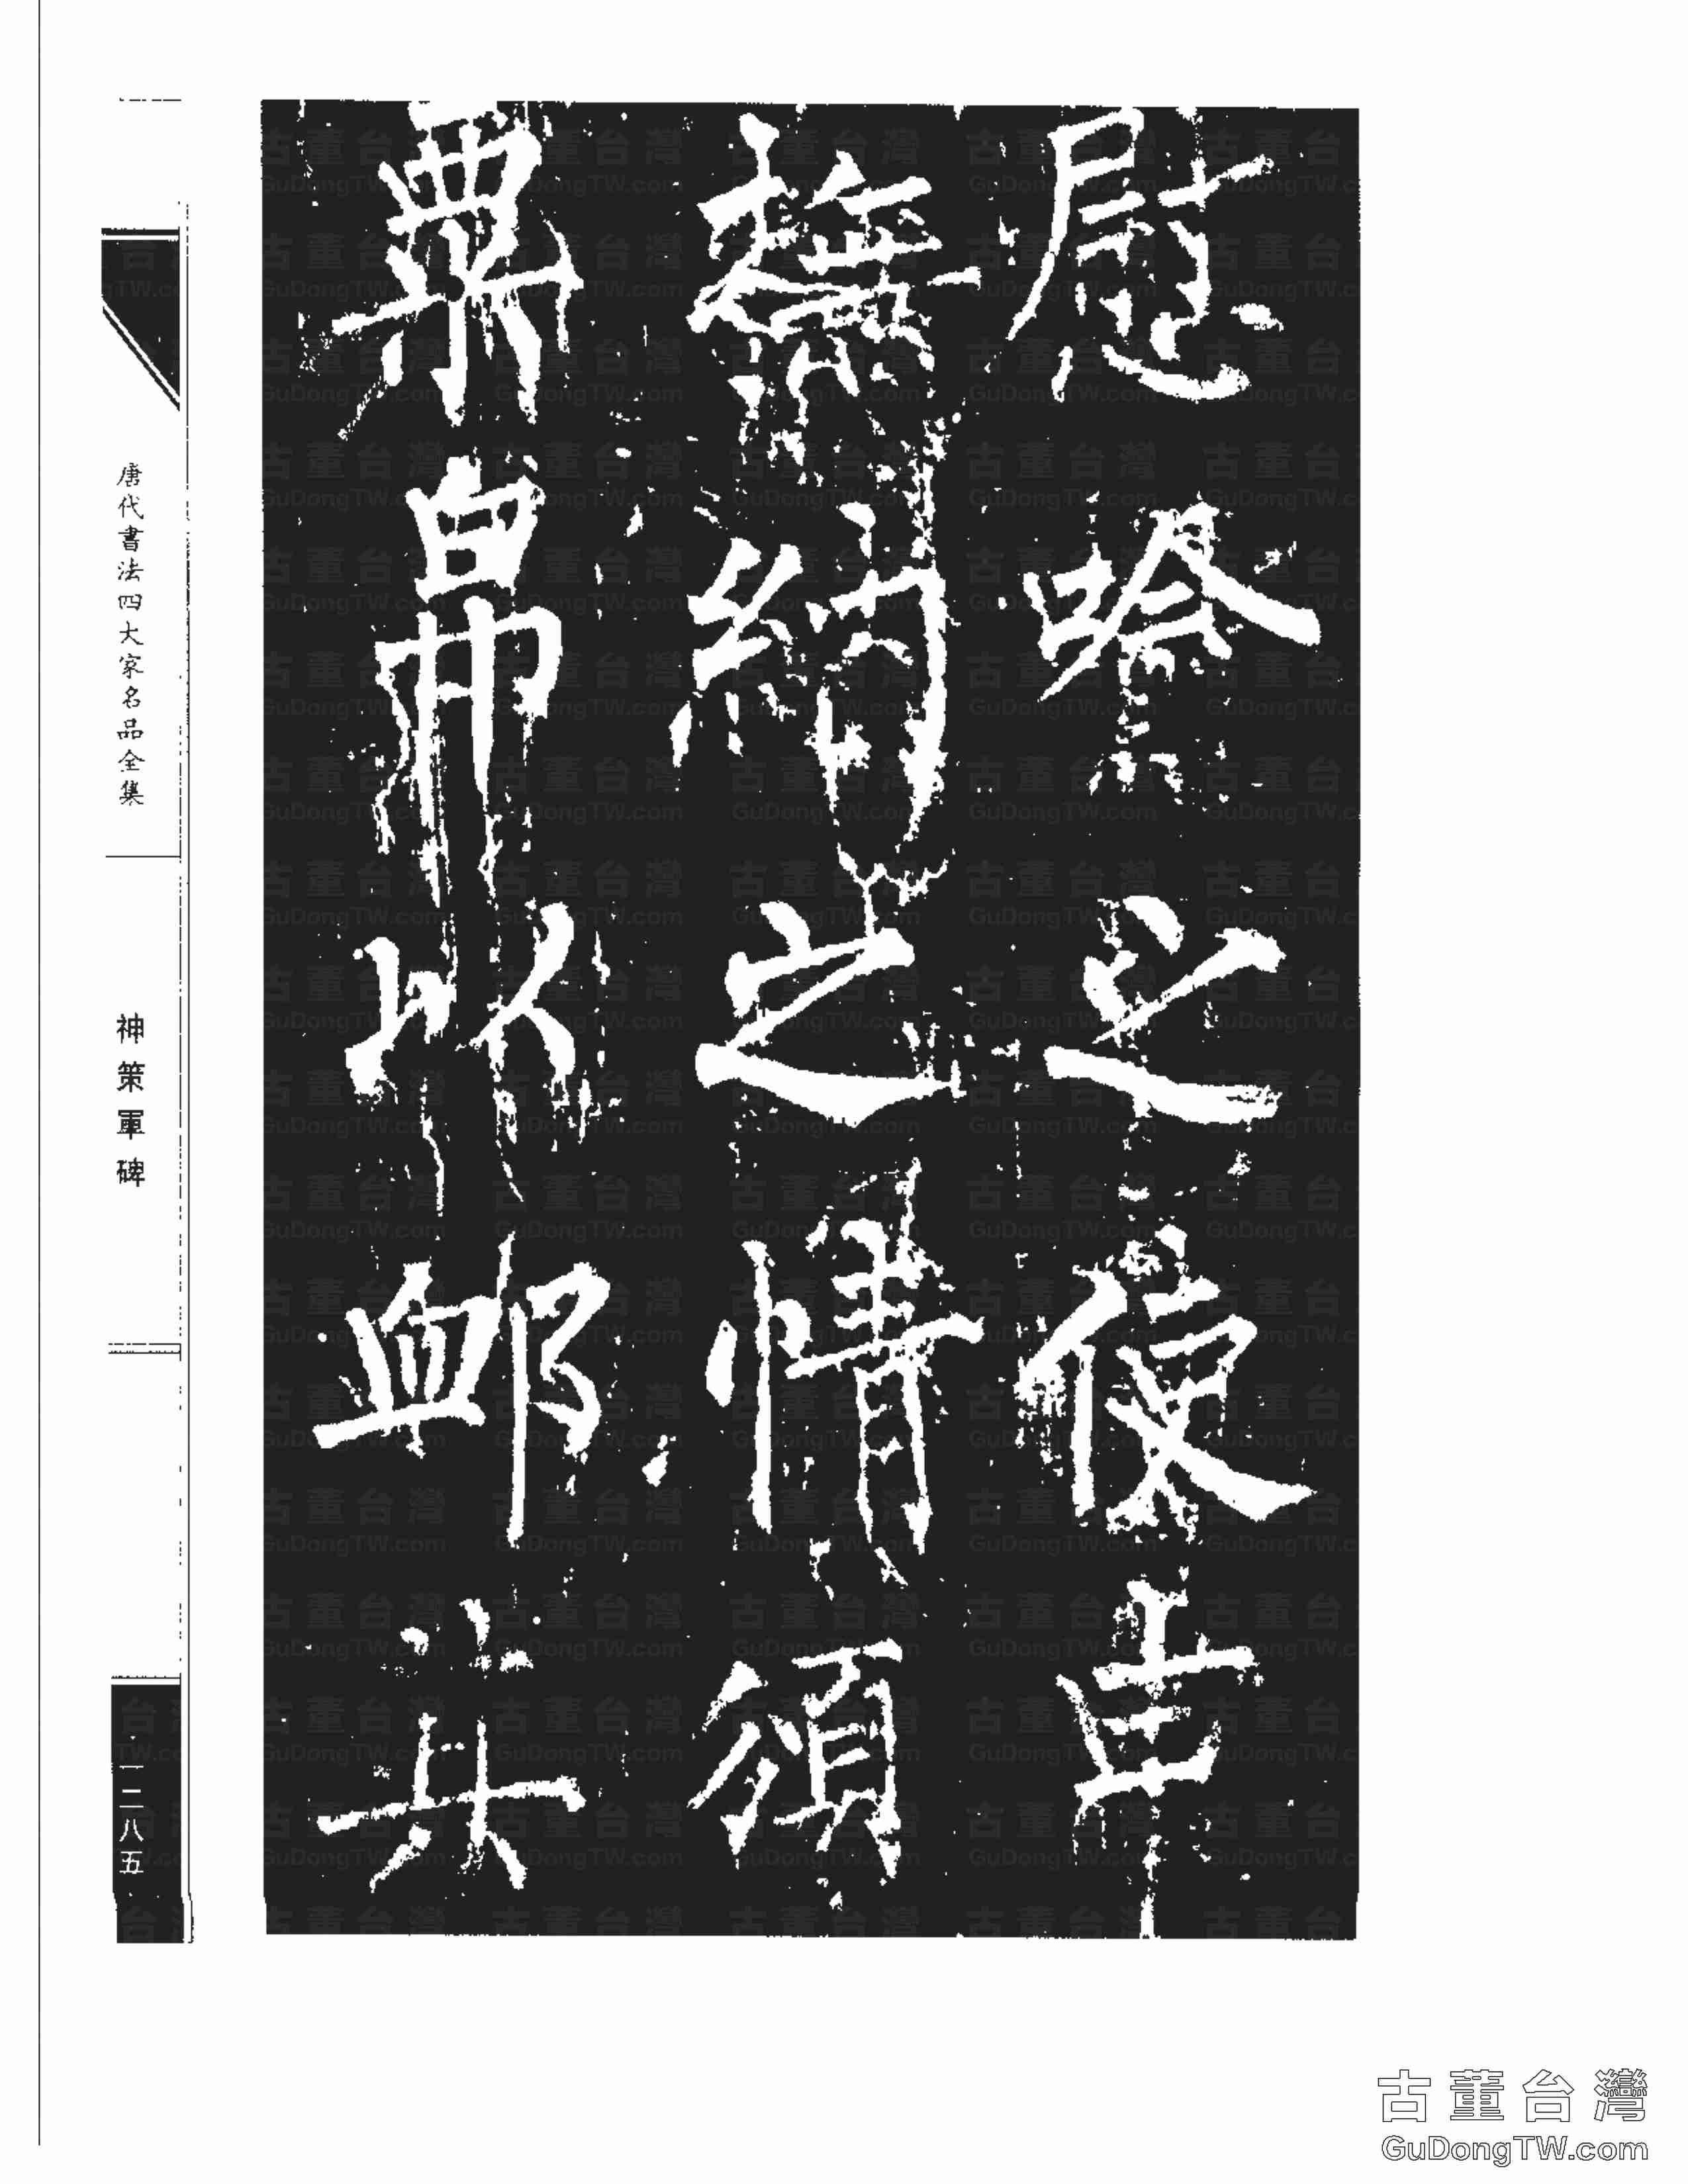 慰之使申
撫納之情頒
粟帛以卹其
唐代書法四大家名品全集
神策軍碑
一二八五
古董台灣
GuDongTW.com